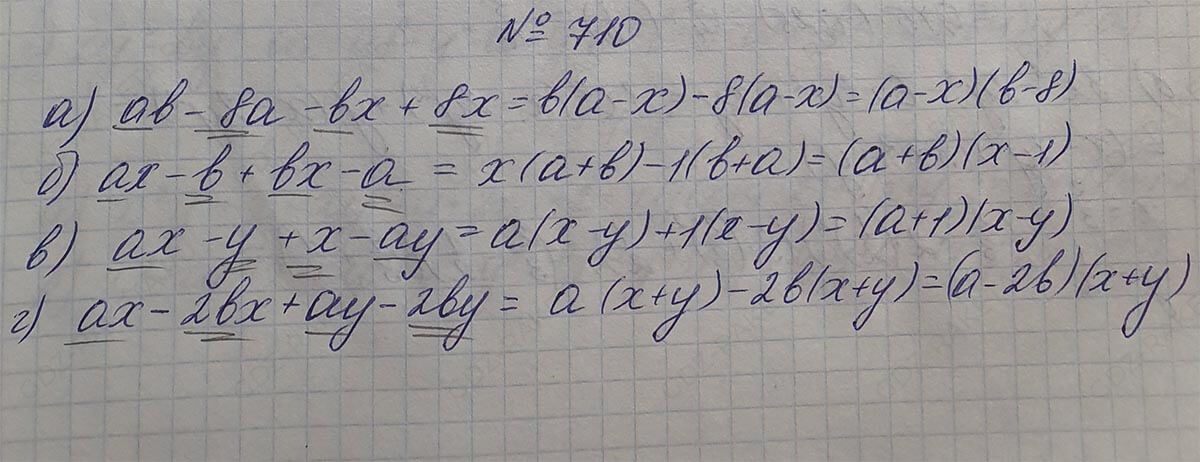 № 710
а) ab - 8a - bx + 8x = b(a-x) - 8(a-x) = (a-x)(b-8)
б) ax - b + bx - a = x(a+b) - 1(b+a) = (a+b)(x-1)
в) ax - y + x - ay = a(x-y) + 1(x-y) = (a+1)(x-y)
г) ax - 2bx + ay - 2by = a(x+y) - 2b(x+y) = (a-2b)(x+y)